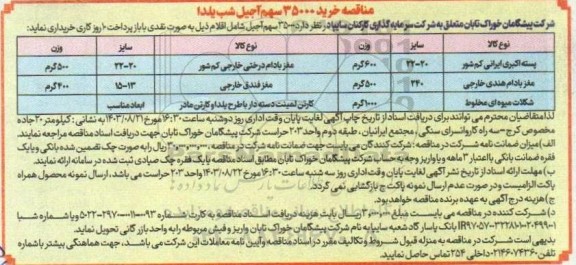 مناقصه خرید ۳۵۰۰۰ سهم آجیل شب یلدا
شرکت پیشگامان خوراک تابان متعلق به شرکت سرمایه گذاری کارکنان سایپا در نظر دارد ۳۵۰۰۰ سهم آجیل شامل اقلام ذیل به صورت نقدی با باز پرداخت ۱۰ روز کاری خریداری نماید:
نوع کالا سایز وزن نوع کالا سایز وزن
پسته اکبری ایرانی کم شور ۲۲-۲۰ ۶۰۰گرم مغز بادام درختی خارجی کم شور ۲۲-۲۰ ۵۰۰گرم
مغز بادام هندی خارجی ۲۴۰ ۵۰۰گرم مغز فندق خارجی ۱۵-۱۳ ۴۰۰گرم
شکلات میوه ای مخلوط ۱۰۰۰گرم کارتن لمینت دسته دار با طرح یلدا و کارتن مادر ابعاد مناسب
لذا متقاضیان محترم می توانند برای دریافت اسناد از تاریخ چاپ آگهی لغایت پایان وقت اداری روز دوشنبه ساعت ۱۶:۳۰ مورخ ۱۴۰۳/۰۸/۲۱ به نشانی: کیلومتر ۲۰ جاده
مخصوص کرج-سه راه کاروانسرای سنگی، مجتمع ایرانیان، طبقه دوم واحد ۲۰۳ حراست شرکت پیشگامان خوراک تابان جهت دریافت اسناد مناقصه مراجعه نمایند.
الف) میزان ضمانت نامه شرکت در مناقصه: شرکت کنندگان می بایست جهت ضمانت نامه شرکت در مناقصه، ریال را به صورت چک تضمین شده بانکی و یا یک
فقره ضمانت بانکی با اعتبار ۳ ماهه و یا واریز وجه به حساب شرکت پیشگامان خوراک تابان مطابق اسناد مناقصه یا یک فقره چک صیادی ثبت شده در سامانه ارائه نمایند.
ب) مهلت ارائه اسناد از تاریخ نشر آگهی لغایت پایان وقت اداری روز سه شنبه ساعت ۱۶:۳۰ مورخ ۱۴۰۳/۰۸/۲۲ واحد ۲۰۳ حراست می باشد، ارسال نمونه محصول همراه
پاکت الزامیست و در صورت عدم ارسال نمونه پاکت ج بازگشایی نمی گردد.
ج) هزینه درج آگهی به عهده برنده مناقصه خواهد بود.
د) شرکت کننده در مناقصه می بایست مبلغ ریال بابت هزینه دریافت اسناد مناقصه به کارت شماره و یا شماره شبا
بانک پاسارگاد شعبه سایپا به نام شرکت پیشگامان خوراک تابان واریز و فیش مربوطه را به واحد بازرگانی تحویل نماید.
بدیهی است شرکت در مناقصه به منزله قبول شروط و تکالیف مقرر در اسناد مناقصه و آیین نامه معاملات این شرکت می باشد، جهت هماهنگی بیشتر با شماره
تلفن ۰۲۱۴۶۰۷۴۳۶۰ داخلی ۲۵۴ تماس حاصل نمایید.